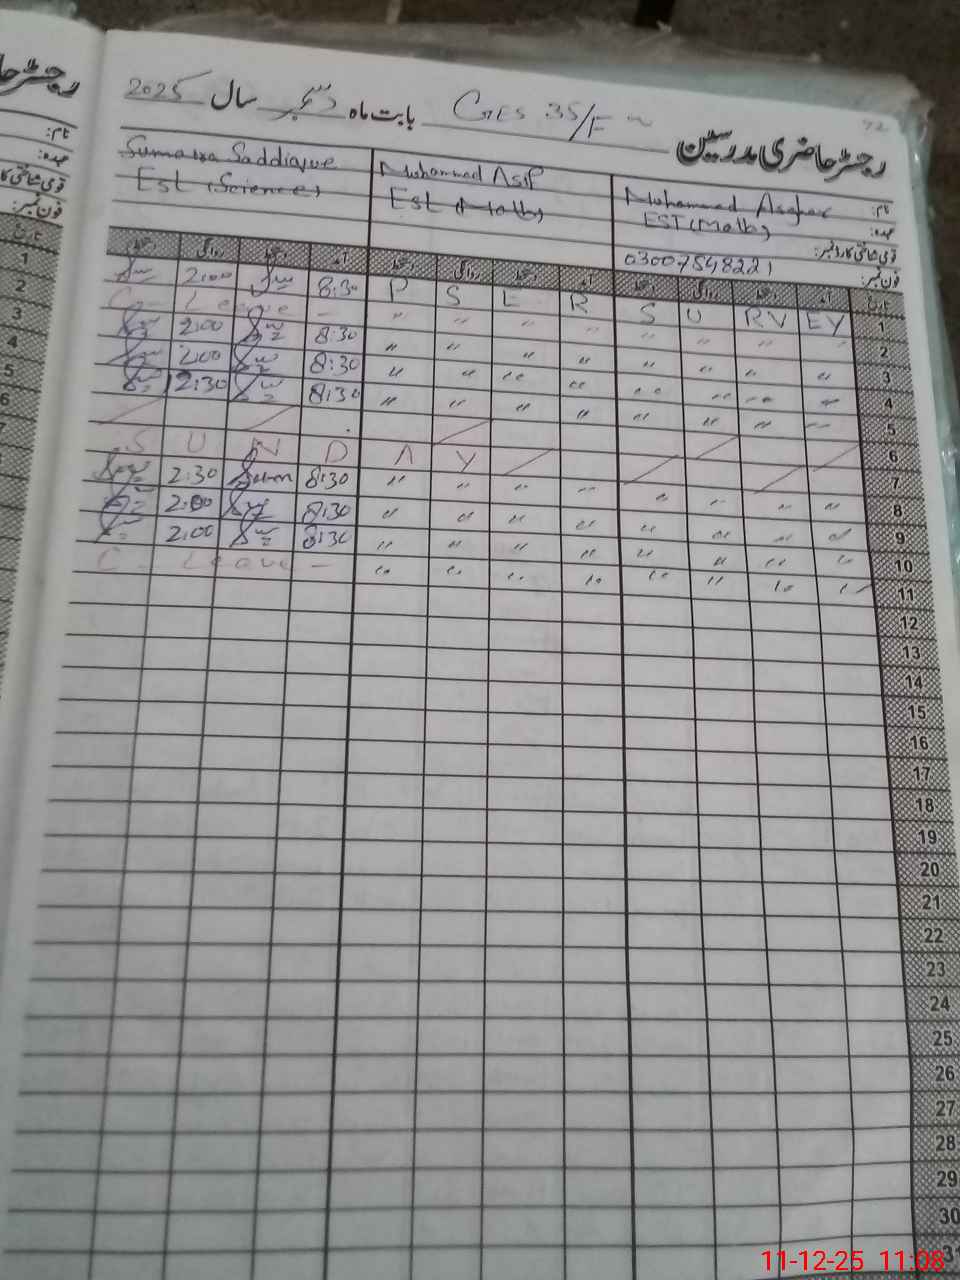 72
رجسٹر حاضری مدرسین GES 35/F بابت ماہ دسمبر سال 2025
نام: Muhammad Asghar Muhammad Asif Sumaira Saddique
عہدہ: EST (Math) Est (Math) Est (Science)
قومی شناختی کارڈ نمبر:
فون نمبر: 03007548221
تاریخ آمد دستخط روانگی دستخط آمد دستخط روانگی دستخط آمد دستخط روانگی دستخط
2:00 8:30 P S E R S U RV EY 1
C - Leave - " " " " " " " " 2
2:00 8:30 " " " " " " " " 3
2:00 8:30 " " " " " " " " 4
2:30 8:30 " " " " " " " " 5
6
S U N D A Y 7
2:30 8:30 " " " " " " " " 8
2:00 8:30 " " " " " " " " 9
2:00 8:30 " " " " " " " " 10
C - Leave - " " " " " " " " 11
12
13
14
15
16
17
18
19
20
21
22
23
24
25
26
27
28
29
30
31
رجسٹر
نام:
عہدہ:
قومی شناختی کا
فون نمبر:
تاریخ
1
2
3
4
5
6
11-12-25 11:08